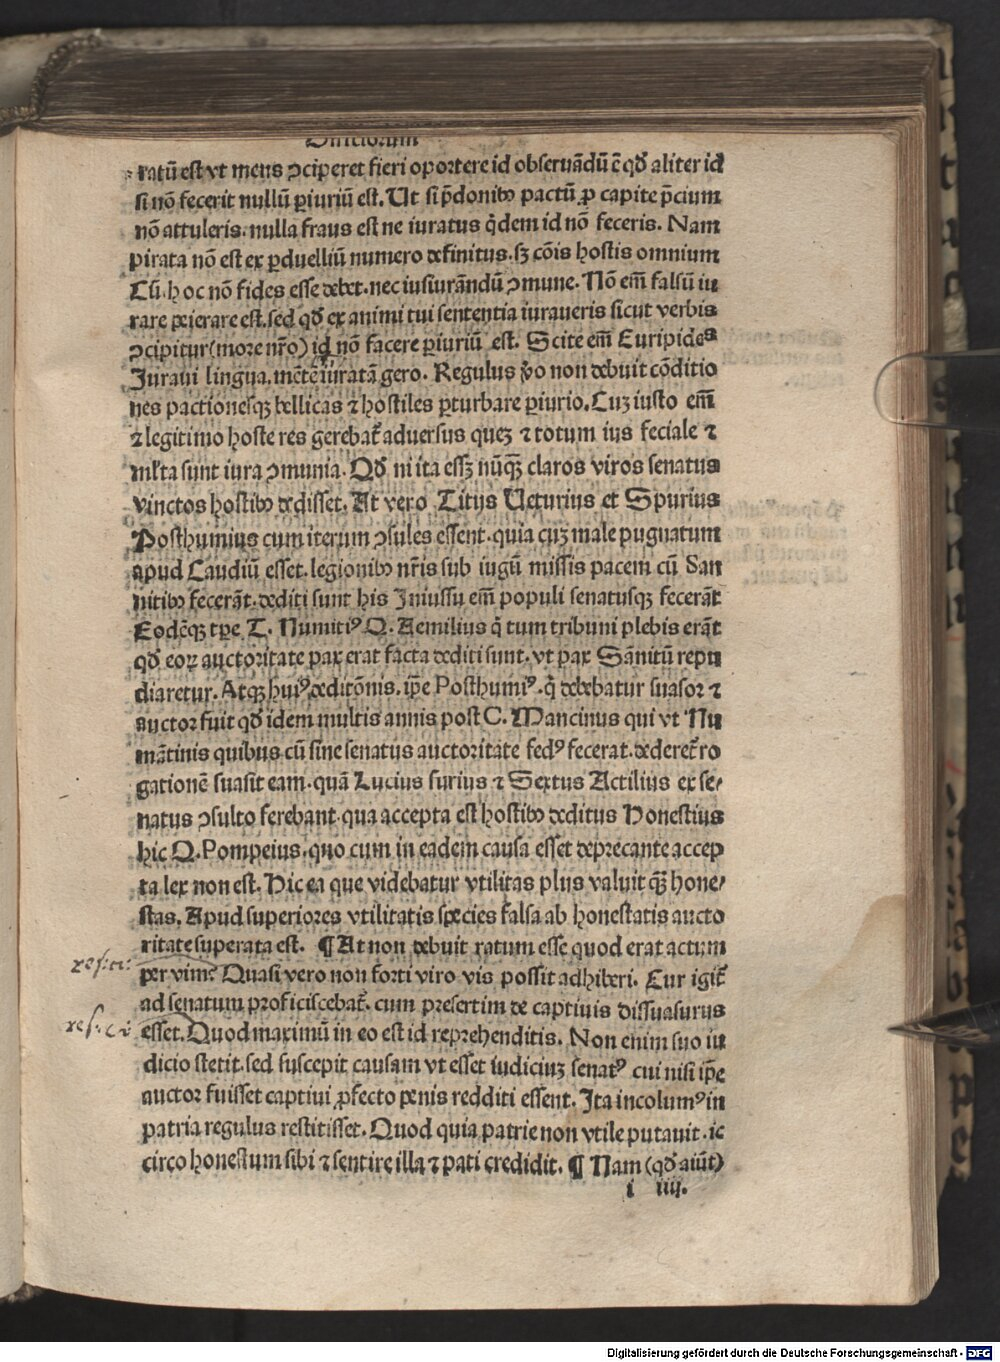 Officiorum
ratū est vt mens ↄciperet fieri oportere id obseruādū ē qđ aliter id
si nō fecerit nullū ꝑiuriū est. Ut si p̄donibꝰ pactū ꝓ capite p̄cium
nō attuleris. nulla fraus est ne iuratus q̇dem id nō feceris. Nam
pirata nō est ex ꝑduelliū numero definitus. sꝫ cōis hostis omnium
Cū hoc nō fides esse debet. nec iusiurādū ↄmune. Nō em̄ falsū iu
rare peierare est. sed qđ ex animi tui sententia iuraueris sicut verbis
ↄcipitur (more nr̄o) id nō facere ꝑiuriū est. Scite em̄ Euripides
Iuraui lingua. mētē iuratā gero. Regulus ṽo non debuit cōditio
nes pactionesqꝫ bellicas ⁊ hostiles ꝑturbare ꝑiurio. Cuꝫ iusto em̄
⁊ legitimo hoste res gerebat̄ aduersus queꝫ ⁊ totum ius feciale ⁊
ml'ta sunt iura ↄmunia. Qđ ni ita essꝫ nūqꝫ̄ claros viros senatus
vinctos hostibꝰ dedisset. At vero Titus Ueturius et Spurius
Posthumius cum iterum ↄsules essent. quia cuꝫ male pugnatum
apud Caudiū esset. legionibꝰ nr̄is sub iugū missis pacem cū San
nitibꝰ fecerāt. dediti sunt his Iniussu em̄ populi senatusqꝫ fecerāt
Eodēqꝫ tꝑe T. Numitiꝰ Q. Aemilius q̇ tum tribuni plebis erāt
qđ eoꝝ auctoritate pax erat facta dediti sunt. vt pax Sānitū repu
diaretur. Atqꝫ huiꝰ deditōnis. ip̄e Posthumiꝰ. q̇ debebatur suasor ⁊
auctor fuit qđ idem multis annis post C. Mancinus qui vt Nu
mātinis quibus cū sine senatus auctoritate fedꝰ fecerat. dederet̄ ro
gationē suasit eam. quā Lucius furius ⁊ Sextus Actilius ex se/
natus ↄsulto ferebant. qua accepta est hostibꝰ deditus Honestius
hic Q. Pompeius. quo cum in eadem causa esset deprecante accep
ta lex non est. Hic ea que videbatur vtilitas plus valuit qꝫ̄ hone/
stas. Apud superiores vtilitatis species falsa ab honestatis aucto
ritate superata est. ¶ At non debuit ratum esse quod erat actum
per vim? Quasi vero non forti viro vis possit adhiberi. Cur igit̄
ad senatum proficiscebat̄. cum presertim de captiuis dissuasurus
esset. Quod maximū in eo est id reprehenditis. Non enim suo iu
dicio stetit. sed suscepit causam vt esset iudiciuꝫ senatꝰ cui nisi ip̄e
auctor fuisset captiui ꝓfecto penis redditi essent. Ita incolumꝰ in
patria regulus restitisset. Quod quia patrie non vtile putauit. ic
circo honestum sibi ⁊ sentire illa ⁊ pati credidit. ¶ Nam (qđ aiūt)
i iiij.
Digitalisierung gefördert durch die Deutsche Forschungsgemeinschaft - DFG